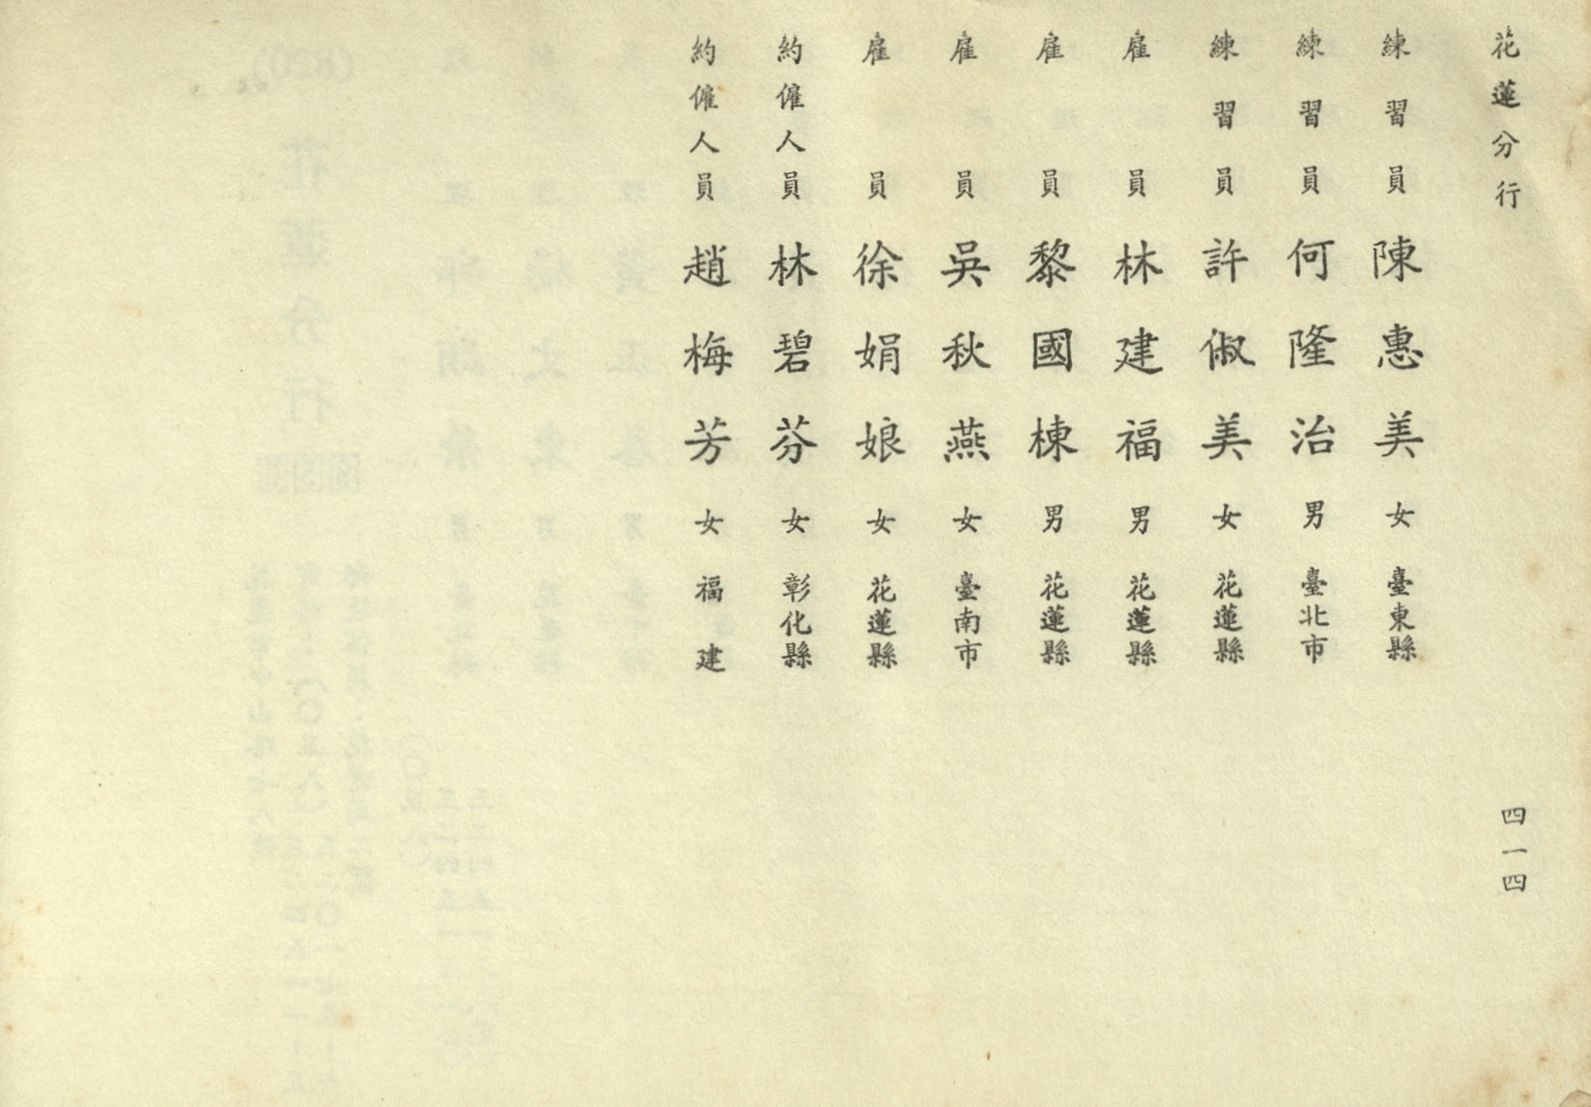 花蓮分行 四一四
練習員 陳惠美 女 臺東縣
練習員 何隆治 男 臺北市
練習員 許俶美 女 花蓮縣
雇員 林建福 男 花蓮縣
雇員 黎國棟 男 花蓮縣
雇員 吳秋燕 女 臺南市
雇員 徐娟娘 女 花蓮縣
約僱人員 林碧芬 女 彰化縣
約僱人員 趙梅芳 女 福建